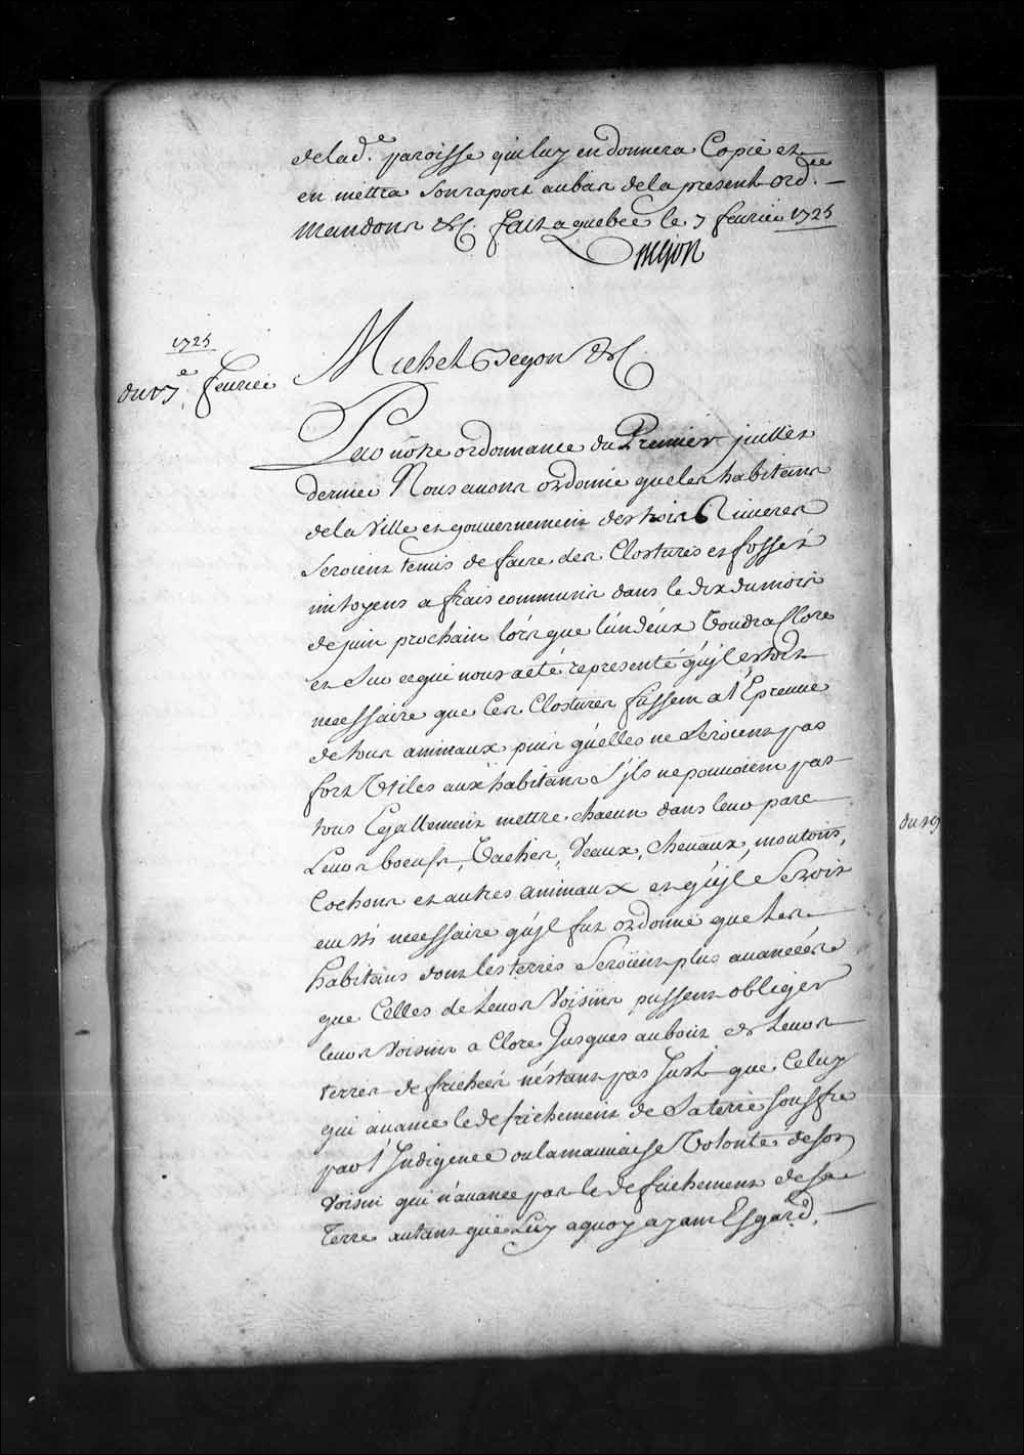 de lad.e paroisse qui luy en donnera Copie et
en mettra son raport au bas de la presente ord.ce
Mandons &c. fait a quebec le 7 fevrier 1725
Begon
1725
du 17.e fevrier
Michel Begon &c.
Par nôtre ordonnance du Premier juillet
dernier Nous avons ordonné que les habitans
de la Ville et gouvernement des trois Rivieres
seroient tenus de faire des Clostures et fossés
mitoyens a frais communs dans le dix du mois
de juin prochain lors que l'un d'eux voudra Clore
et sur ce qui nous a eté representé qu'il estoit
necessaire que Ces Clostures fussent a l'Epreuve
de tous animaux puis qu'elles ne seroient pas
fort Utiles aux habitans s'ils ne pouvoient pas
tous Egallement mettre chacun dans leur parc
Leurs boeufs, Vaches, Veaux, chevaux, moutons,
Cochons et autres animaux et qu'il seroit
aussi necessaire qu'il fut ordonné que les
habitans dont les terres seroient plus avancées
que Celles de leurs Voisins pussent obliger
leurs Voisins a Clore Jusques au bout de leurs
terres defrichées n'estant pas Juste que Celuy
qui avance le defrichement de sa terre souffre
par l'Indigence ou la mauvaise Volonté de son
Voisin qui n'avance pas le defrichement de sa
Terre autant que Luy a quoy ayant Esgard,
du 19